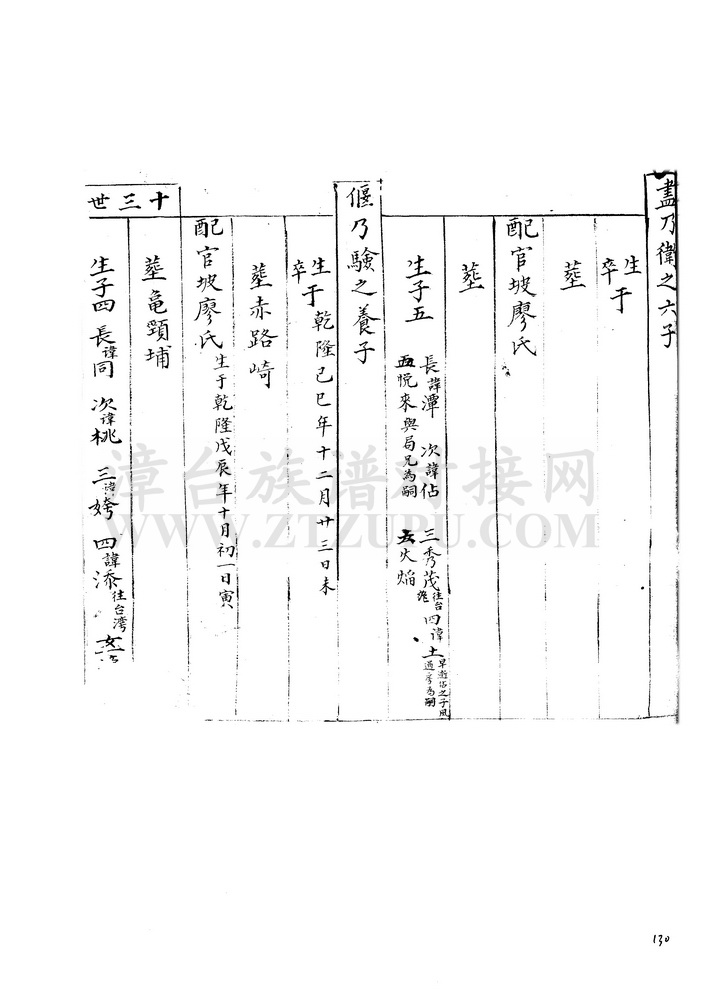 盡乃衛之六子
生于
卒
塟
配官坡廖氏
塟
生子五 長諱潭 次諱佔 三秀茂往台 四諱土早逝佔之子
五悅來與局兄為嗣 火焰
偃乃驗之養子
生于乾隆己巳年十二月廿三日未
卒
塟赤路崎
配官坡廖氏生于乾隆戊辰年十月初一日寅
十三世
塟龜頸埔
生子四 長諱同 次諱桃 三諱姱 四諱添往台湾
漳台族谱对接网
WWW.ZTZUPU.COM
130